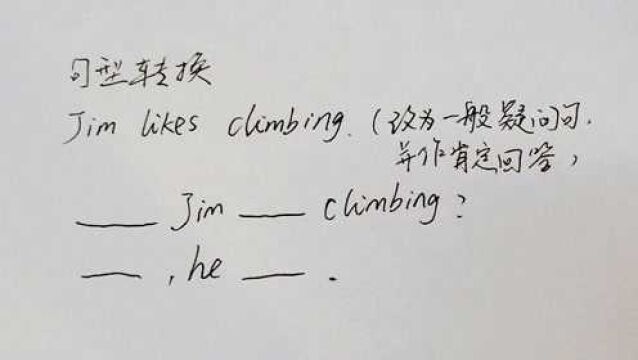 句型转换
Jim likes climbing. (改为一般疑问句,
并作肯定回答)
____ Jim ____ climbing?
____, he ____.